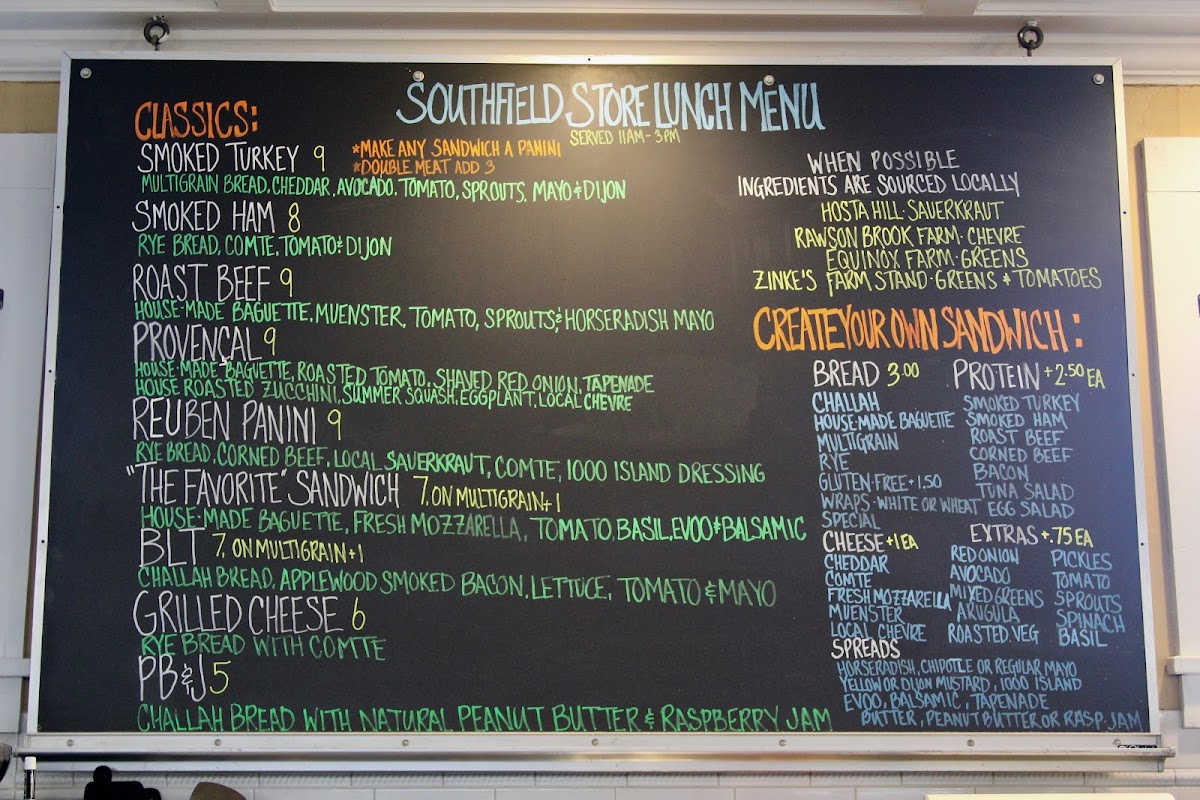 SOUTHFIELD STORE LUNCH MENU
SERVED 11AM-3PM
CLASSICS:
*MAKE ANY SANDWICH A PANINI
*DOUBLE MEAT ADD 3
SMOKED TURKEY 9
MULTIGRAIN BREAD, CHEDDAR, AVOCADO, TOMATO, SPROUTS, MAYO & DIJON
SMOKED HAM 8
RYE BREAD, COMTE, TOMATO & DIJON
ROAST BEEF 9
HOUSE-MADE BAGUETTE, MUENSTER, TOMATO, SPROUTS & HORSERADISH MAYO
PROVENÇAL 9
HOUSE-MADE BAGUETTE, ROASTED TOMATO, SHAVED RED ONION, TAPENADE
HOUSE ROASTED ZUCCHINI, SUMMER SQUASH, EGGPLANT, LOCAL CHEVRE
REUBEN PANINI 9
RYE BREAD, CORNED BEEF, LOCAL SAUERKRAUT, COMTE, 1000 ISLAND DRESSING
"THE FAVORITE" SANDWICH 7. ON MULTIGRAIN +1
HOUSE-MADE BAGUETTE, FRESH MOZZARELLA, TOMATO, BASIL, EVOO & BALSAMIC
BLT 7. ON MULTIGRAIN +1
CHALLAH BREAD, APPLEWOOD SMOKED BACON, LETTUCE, TOMATO & MAYO
GRILLED CHEESE 6
RYE BREAD WITH COMTE
PB&J 5
CHALLAH BREAD WITH NATURAL PEANUT BUTTER & RASPBERRY JAM
WHEN POSSIBLE
INGREDIENTS ARE SOURCED LOCALLY
HOSTA HILL·SAUERKRAUT
RAWSON BROOK FARM·CHEVRE
EQUINOX FARM·GREENS
ZINKE'S FARM STAND·GREENS & TOMATOES
CREATE YOUR OWN SANDWICH:
BREAD 3.00
CHALLAH
HOUSE-MADE BAGUETTE
MULTIGRAIN
RYE
GLUTEN-FREE +1.50
WRAPS-WHITE OR WHEAT
SPECIAL
PROTEIN +2.50 EA
SMOKED TURKEY
SMOKED HAM
ROAST BEEF
CORNED BEEF
BACON
TUNA SALAD
EGG SALAD
CHEESE +1 EA
CHEDDAR
COMTE
FRESH MOZZARELLA
MUENSTER
LOCAL CHEVRE
EXTRAS +.75 EA
RED ONION
AVOCADO
MIXED GREENS
ARUGULA
ROASTED VEG
PICKLES
TOMATO
SPROUTS
SPINACH
BASIL
SPREADS
HORSERADISH, CHIPOTLE OR REGULAR MAYO
YELLOW OR DIJON MUSTARD, 1000 ISLAND
EVOO, BALSAMIC, TAPENADE
BUTTER, PEANUT BUTTER OR RASP. JAM